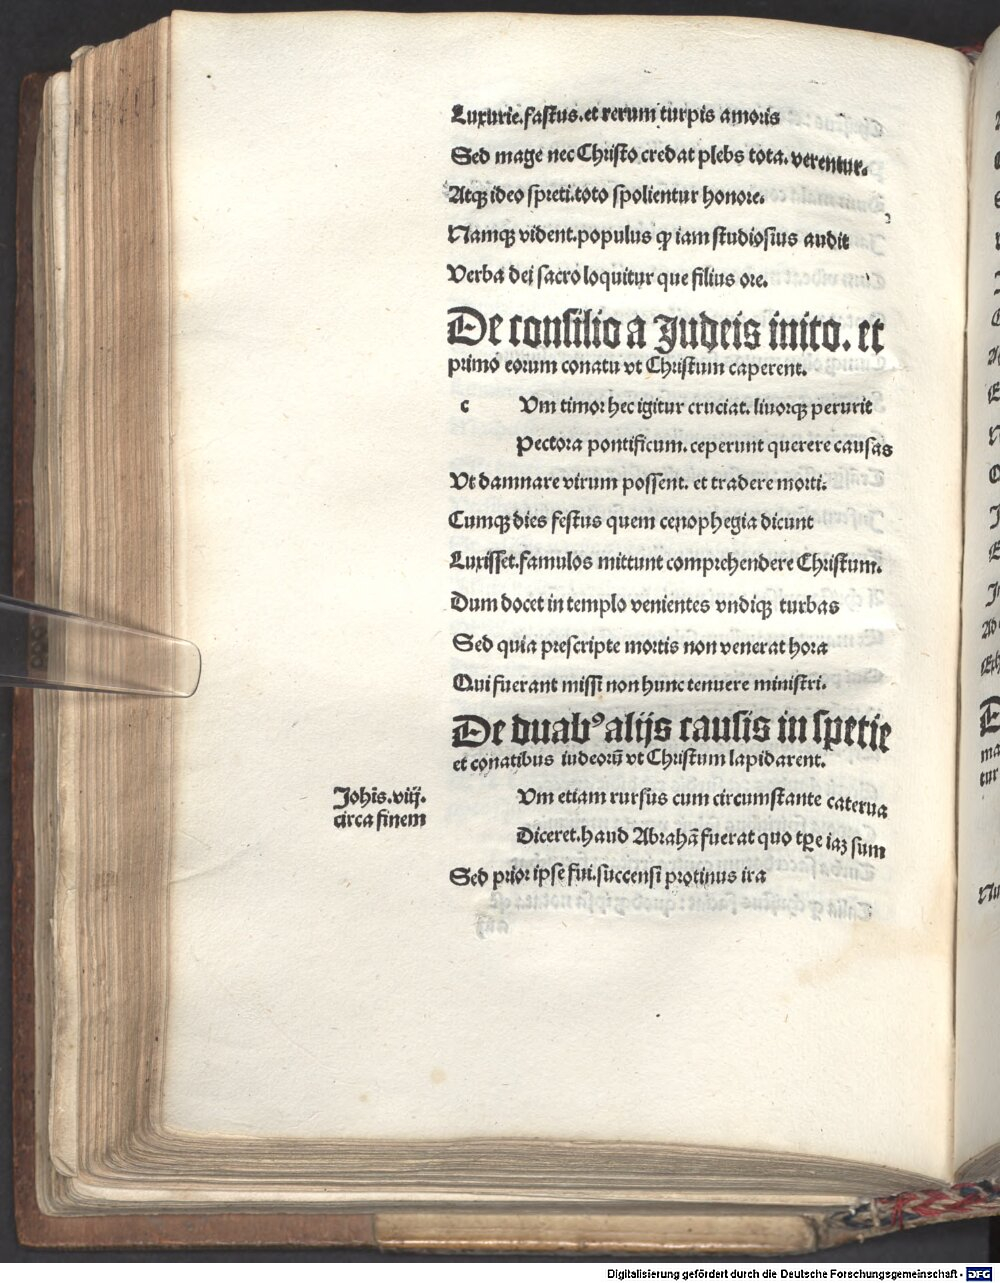 Luxurie.fastus.et rerum turpis amoris
Sed mage nec Christo credat plebs tota. verentur.
Atqꝫ ideo spreti.toto spolientur honore.
Namqꝫ vident.populus ꝙ iam studiosius audit
Verba dei sacro loquitur que filius ore.
De consilio a Judeis inito. et
primo eorum conatu vt Christum caperent.
c Vm timor hec igitur cruciat. liuorqꝫ perurit
Pectora pontificum. ceperunt querere causas
Vt damnare virum possent. et tradere morti.
Cumqꝫ dies festus quem cenophegia dicunt
Luxisset.famulos mittunt comprehendere Christum.
Dum docet in templo venientes vndiqꝫ turbas
Sed quia prescripte mortis non venerat hora
Qui fuerant missi non hunc tenuere ministri.
De duabꝰ alijs causis in spetie
et conatibus iudeorū vt Christum lapidarent.
Johis.viij.
circa finem
Vm etiam rursus cum circumstante caterua
Diceret.haud Abrahā fuerat quo tꝑe iaꝫ sum
Sed prior ipse fui.succensi protinus ira
Digitalisierung gefördert durch die Deutsche Forschungsgemeinschaft - DFG